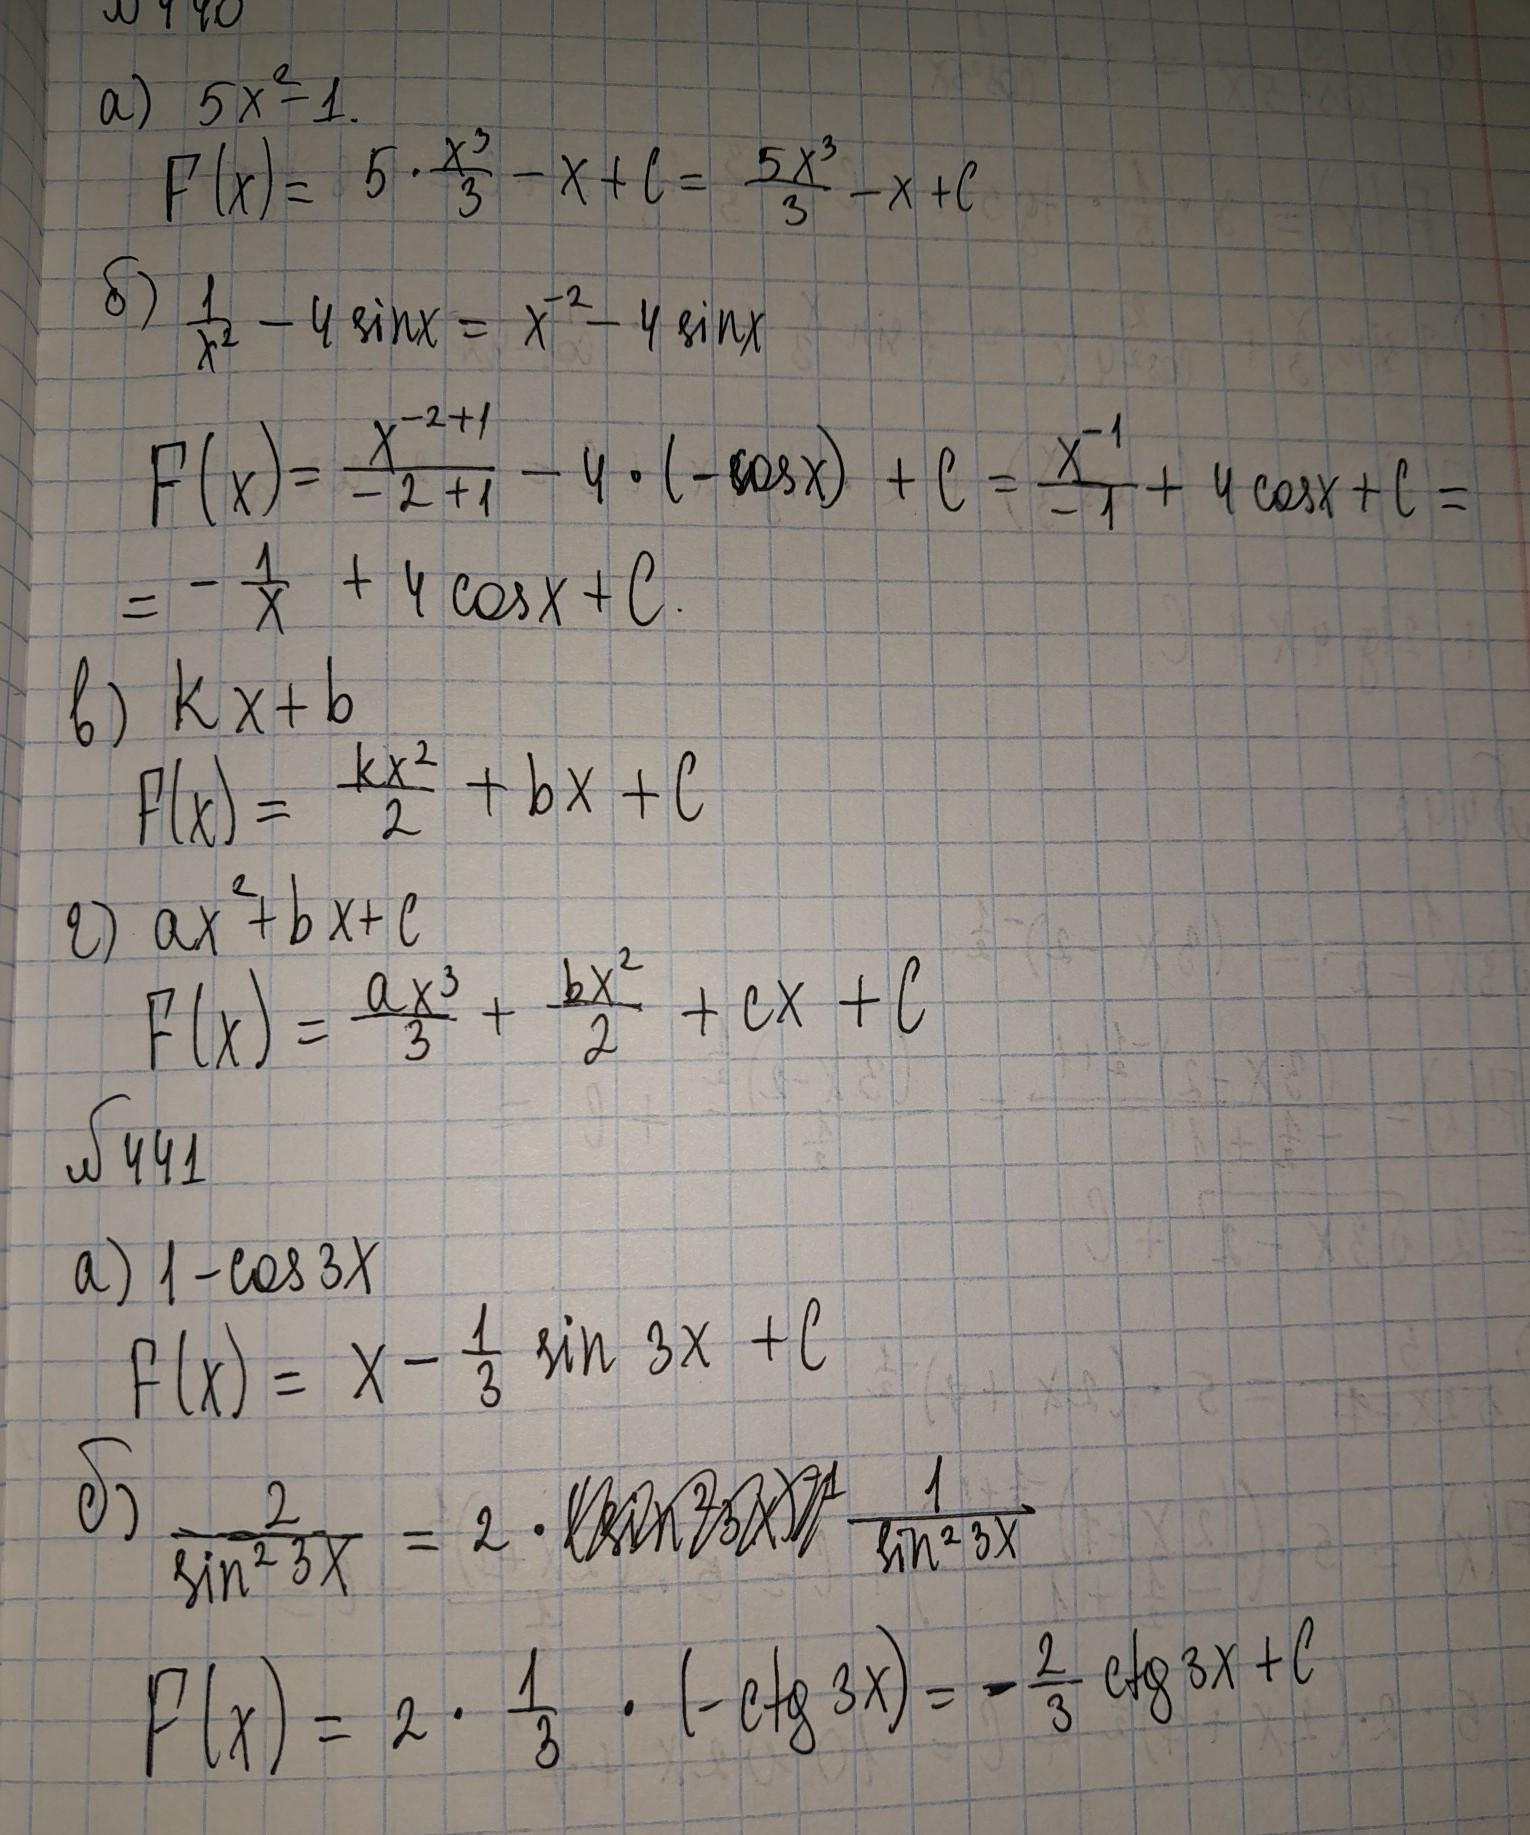 №440
а) 5x² - 1.
F(x) = 5 · x³/3 - x + C = 5x³/3 - x + C
б) 1/x² - 4 sinx = x⁻² - 4 sinx
F(x) = x⁻²⁺¹/(-2+1) - 4 · (-cosx) + C = x⁻¹/-1 + 4 cosx + C =
= - 1/x + 4 cosx + C.
в) kx + b
F(x) = kx²/2 + bx + C
г) ax² + bx + C
F(x) = ax³/3 + bx²/2 + cx + C
№441
а) 1 - cos 3x
F(x) = x - 1/3 sin 3x + C
б) 2/sin² 3x = 2 · 1/sin² 3x
F(x) = 2 · 1/3 · (-ctg 3x) = - 2/3 ctg 3x + C